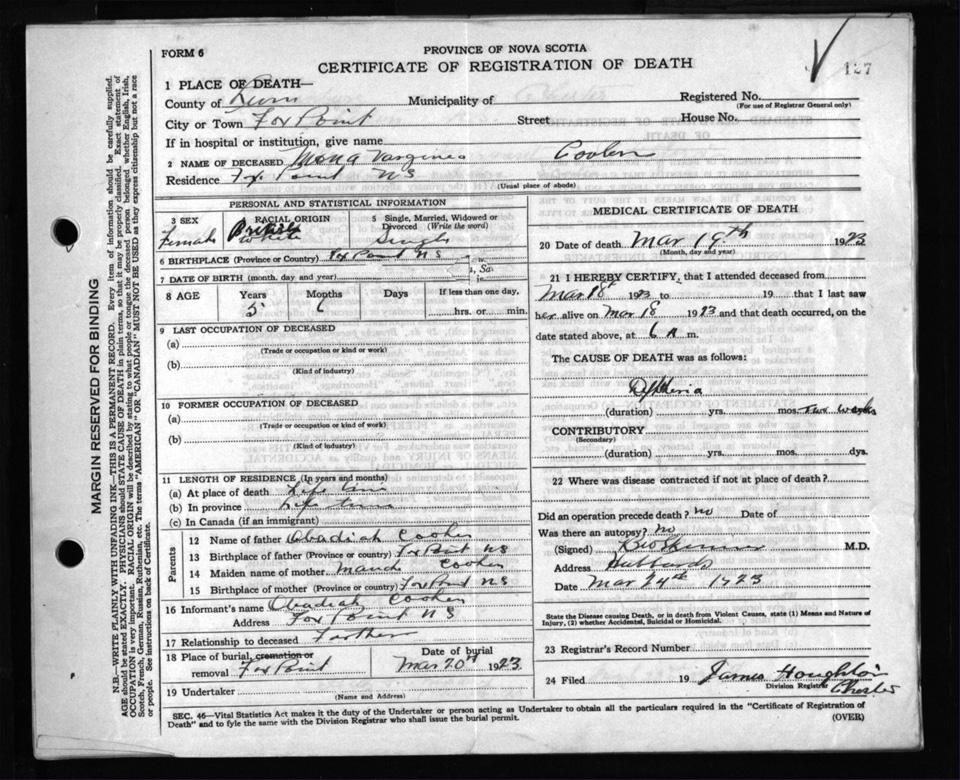 FORM 6
PROVINCE OF NOVA SCOTIA
CERTIFICATE OF REGISTRATION OF DEATH
127
1 PLACE OF DEATH—
County of Lun Municipality of
Registered No.
(For use of Registrar General only)
City or Town Fox Point Street House No.
If in hospital or institution, give name
2 NAME OF DECEASED Mona Coolen
Residence Fox Point N S
(Usual place of abode)
PERSONAL AND STATISTICAL INFORMATION
3 SEX Female
RACIAL ORIGIN British White
5 Single, Married, Widowed or Divorced (Write the word) Single
6 BIRTHPLACE (Province or Country) Fox Point N S
7 DATE OF BIRTH (month, day and year)
8 AGE Years 5 Months 6 Days If less than one day, hrs. or min.
9 LAST OCCUPATION OF DECEASED
(a)
(Trade or occupation or kind or work)
(b)
(Kind of industry)
10 FORMER OCCUPATION OF DECEASED
(a)
(Trade or occupation or kind or work)
(b)
(Kind of industry)
11 LENGTH OF RESIDENCE (In years and months)
(a) At place of death Life time
(b) In province Life time
(c) In Canada (if an immigrant)
Parents
12 Name of father Obadiah Coolen
13 Birthplace of father (Province or country) Fox Point N S
14 Maiden name of mother Maud Coolen
15 Birthplace of mother (Province or country) Fox Point N S
16 Informant's name Obadiah Coolen
Address Fox Point N S
17 Relationship to deceased Farther
18 Place of burial, cremation or removal Fox Point
Date of burial Mar 20th 1923
19 Undertaker
(Name and Address)
MEDICAL CERTIFICATE OF DEATH
20 Date of death Mar 19th 1923
(Month, day and year)
21 I HEREBY CERTIFY, that I attended deceased from
Mar 18th 1923 to 19 that I last saw
her alive on Mar 18 1923 and that death occurred, on the
date stated above, at 6 A m.
The CAUSE OF DEATH was as follows:
Diptheria
(duration) yrs. mos. two weeks
CONTRIBUTORY
(Secondary)
(duration) yrs. mos. dys.
22 Where was disease contracted if not at place of death?
Did an operation precede death? no Date of
Was there an autopsy? no
(Signed) M.D.
Address Hubbards
Date Mar 24th 1923
State the Disease causing Death, or in death from Violent Causes, state (1) Means and Nature of
Injury, (2) whether Accidental, Suicidal or Homicidal.
23 Registrar's Record Number
24 Filed 19 James Houghton
Division Registrar Chester
SEC. 46—Vital Statistics Act makes it the duty of the Undertaker or person acting as Undertaker to obtain all the particulars required in the "Certificate of Registration of
Death" and to fyle the same with the Division Registrar who shall issue the burial permit.
(OVER)
MARGIN RESERVED FOR BINDING
N.B.—WRITE PLAINLY WITH UNFADING INK—THIS IS A PERMANENT RECORD. Every item of information should be carefully supplied.
AGE should be stated EXACTLY. PHYSICIANS should STATE CAUSE OF DEATH in plain terms, so that it may be properly classified. Exact statement of
OCCUPATION is very important. RACIAL ORIGIN will be described by stating to what people or tongue the deceased person belonged whether English, Irish,
Scotch, French, German, Russian, Ruthenian, etc. The terms "AMERICAN" OR "CANADIAN" MUST NOT BE USED as they express citizenship but not a race
or people. See instructions on back of Certificate.